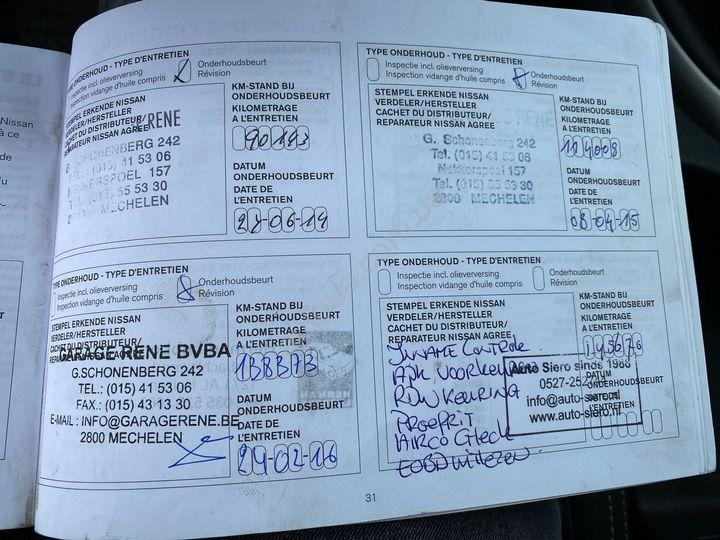 Nissan
à ce
TYPE ONDERHOUD - TYPE D'ENTRETIEN
Inspectie incl. olieverversing
Inspection vidange d'huile compris
Onderhoudsbeurt
Révision
STEMPEL ERKENDE NISSAN
VERDELER/HERSTELLER
CACHET DU DISTRIBUTEUR/
REPARATEUR NISSAN AGREE
RENE
G. SCHONENBERG 242
TEL.: (015) 41 53 06
NEKKERSPOEL 157
TEL. (015) 55 53 30
2800 MECHELEN
KM-STAND BIJ
ONDERHOUDSBEURT
KILOMETRAGE
A L'ENTRETIEN
DATUM
ONDERHOUDSBEURT
DATE DE
L'ENTRETIEN
TYPE ONDERHOUD - TYPE D'ENTRETIEN
Inspectie incl. olieverversing
Inspection vidange d'huile compris
Onderhoudsbeurt
Révision
STEMPEL ERKENDE NISSAN
VERDELER/HERSTELLER
CACHET DU DISTRIBUTEUR/
REPARATEUR NISSAN AGREE
G. Schonenberg 242
Tel. (015) 41 53 06
Nekkerspoel 157
Tel. (015) 55 53 30
2800 MECHELEN
KM-STAND BIJ
ONDERHOUDSBEURT
KILOMETRAGE
A L'ENTRETIEN
114008
DATUM
ONDERHOUDSBEURT
DATE DE
L'ENTRETIEN
08-04-15
TYPE ONDERHOUD - TYPE D'ENTRETIEN
Inspectie incl. olieverversing
Inspection vidange d'huile compris
Onderhoudsbeurt
Révision
STEMPEL ERKENDE NISSAN
VERDELER/HERSTELLER
CACHET DU DISTRIBUTEUR/
REPARATEUR NISSAN AGREE
GARAGE RENE BVBA
G.SCHONENBERG 242
TEL.: (015) 41 53 06
FAX.: (015) 43 13 30
E-MAIL : INFO@GARAGERENE.BE
2800 MECHELEN
KM-STAND BIJ
ONDERHOUDSBEURT
KILOMETRAGE
A L'ENTRETIEN
138373
DATUM
ONDERHOUDSBEURT
DATE DE
L'ENTRETIEN
29-02-16
TYPE ONDERHOUD - TYPE D'ENTRETIEN
Inspectie incl. olieverversing
Inspection vidange d'huile compris
Onderhoudsbeurt
Révision
STEMPEL ERKENDE NISSAN
VERDELER/HERSTELLER
CACHET DU DISTRIBUTEUR/
REPARATEUR NISSAN AGREE
INNAME CONTROLE
APK VOORKEUREN
RDW KEURING
PROEFRIT
AIRCO Check
EOBD uitlezen
KM-STAND BIJ
ONDERHOUDSBEURT
KILOMETRAGE
A L'ENTRETIEN
Auto Siero sinds 1988
info@auto-siero.nl
www.auto-siero.nl
DATUM
ONDERHOUDSBEURT
DATE DE
L'ENTRETIEN
31